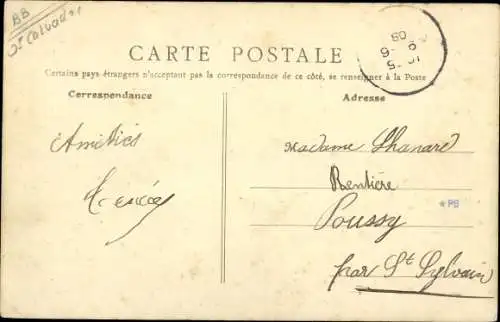 BB
Calvados
CARTE POSTALE
Certains pays étrangers n'acceptant pas la correspondance de ce côté, se renseigner à la Poste
Correspondance
Adresse
Amitiés
Madame Lhanard
Rentière
*PB
Poussy
par St Sylvain